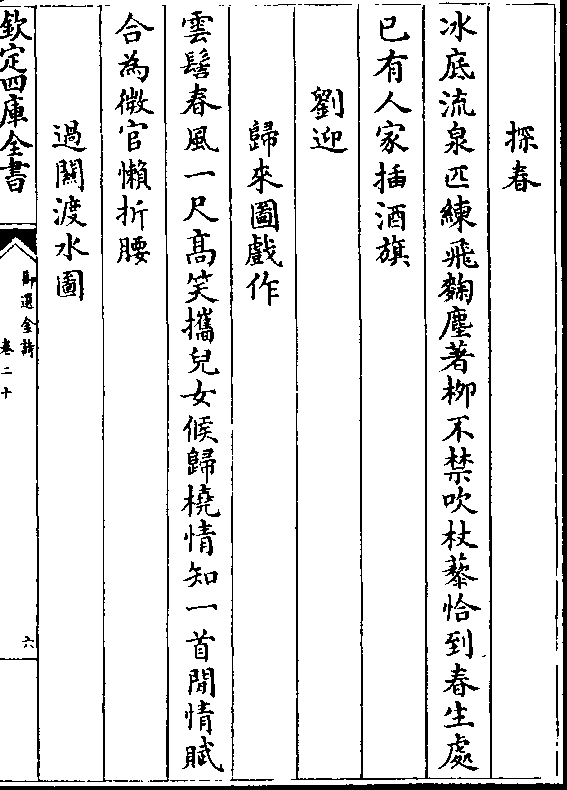 探春
冰底流泉匹練飛麴塵著柳不禁吹杖藜恰到春生處
已有人家插酒旗
劉迎
歸來圖戲作
雲髻春風一尺髙笑攜兒女候歸橈情知一首閒情賦
合為微官懶折腰
過關渡水圖
欽定四庫全書
御選金詩
卷二十
六